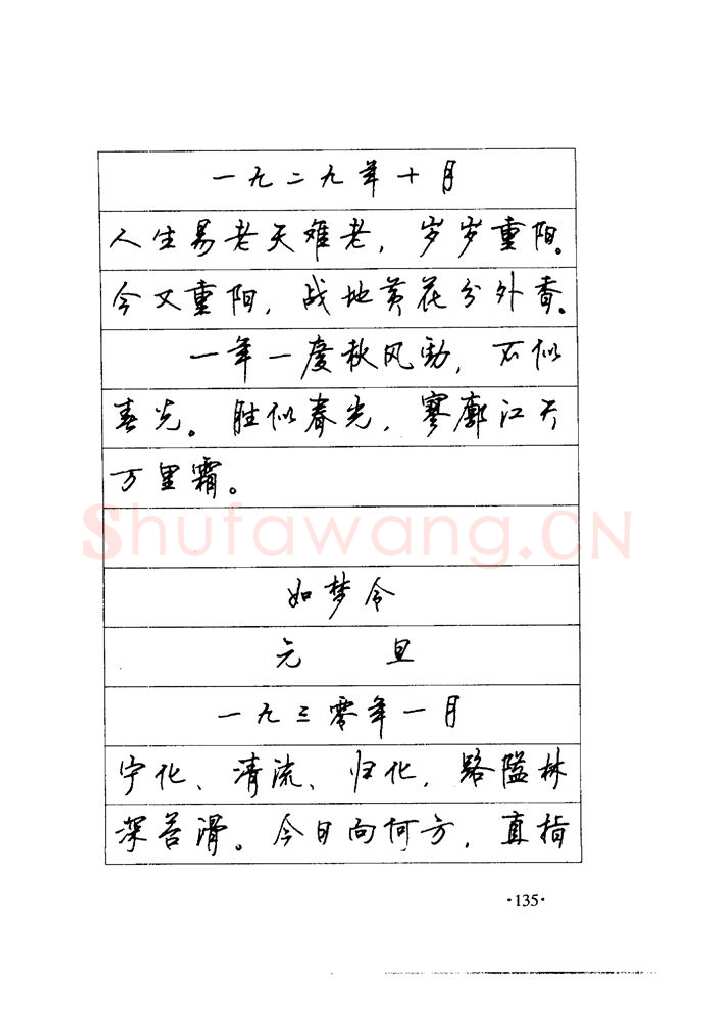 一九二九年十月
人生易老天难老，岁岁重阳。
今又重阳，战地黄花分外香。
一年一度秋风劲，不似
春光。胜似春光，寥廓江天
万里霜。
Shufawang.CN
如梦令
元 旦
一九三零年一月
宁化、清流、归化，路隘林
深苔滑。今日向何方，直指
·135·